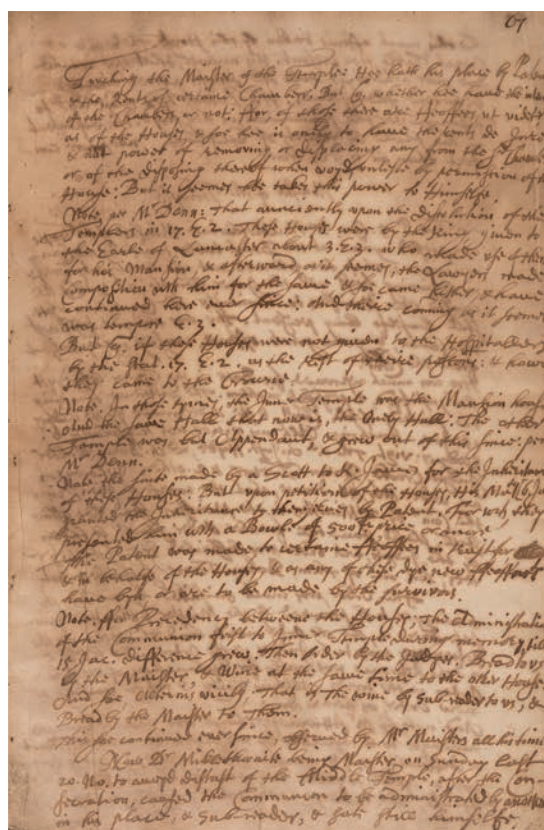 67
Touching the Maister of the Temple: Hee hath his place by Patent
& the Rents of certaine Chambers. But q. whether hee have the
of the Chambers, or not; For of those there are Feoffees ut videtur
as of the Houses, & soe hee is only to have the rents de Jure
& not power of removing or displacing any from the sd Chambers
or of the disposing thereof when voyd by permission of the
House: But it seemes hee takes this power to Himselfe.
Note, per Mr Denn: That aunciently upon the dissolution of the
Templers in 17. E. 2. These Houses were by the King given to
the Earle of Lancaster about 3. E. 3. who made use of these
for his Mansion, & afterward, as it seemes, the Lawyers made
Composition with him for the same & soe came hither & have
continued here ever since: And theire coming as it seemes
was tempore E. 3.
But q. if those Houses were not given to the Hospitallers
by the Stat. 17. E. 2. as the Rest of theire possess: & howe
they came to the Crowne
Note, In those tymes, the Inner Temple was the Mansion house
And the same Hall that now is, the Onely Hall: The other
Temple was but Appendant, & grew out of this since: per
Mr Denn.
Note the suite made by a Scott to K. James for the Inheritance
of these Houses: But upon petition of the Houses, His Maty 6 Jac
granted the Inheritance to themselves by Patent. For wch they
presented him with a Bowle of 500 price or more
The Patent was made to certaine Feoffees in Trust for
& in behalfe of the Houses & as any of them dye new Feoffmts
have byn or are to be made by the survivors.
Note, for Precedency betweene the Houses; The Administration
of the Communion first to Inner Temple during memory, till
15 Jac. difference grew. Then order by the Judges. Bread to us
by the Maister, & Wine at the same time to the other House
And soe alternis vicibus. That is the wine by Sub-reader to us, &
Bread by the Maister to Them.
This soe continued ever since, observed by Mr Maisters all his time
Now Dr Micklethwaite being Maister, on Sunday last
20. No. to avoyd distast of the Middle Temple, after the Con-
secration, caused the Communion to be administred by another
in his place, & Sub-reader, & sate still himselfe